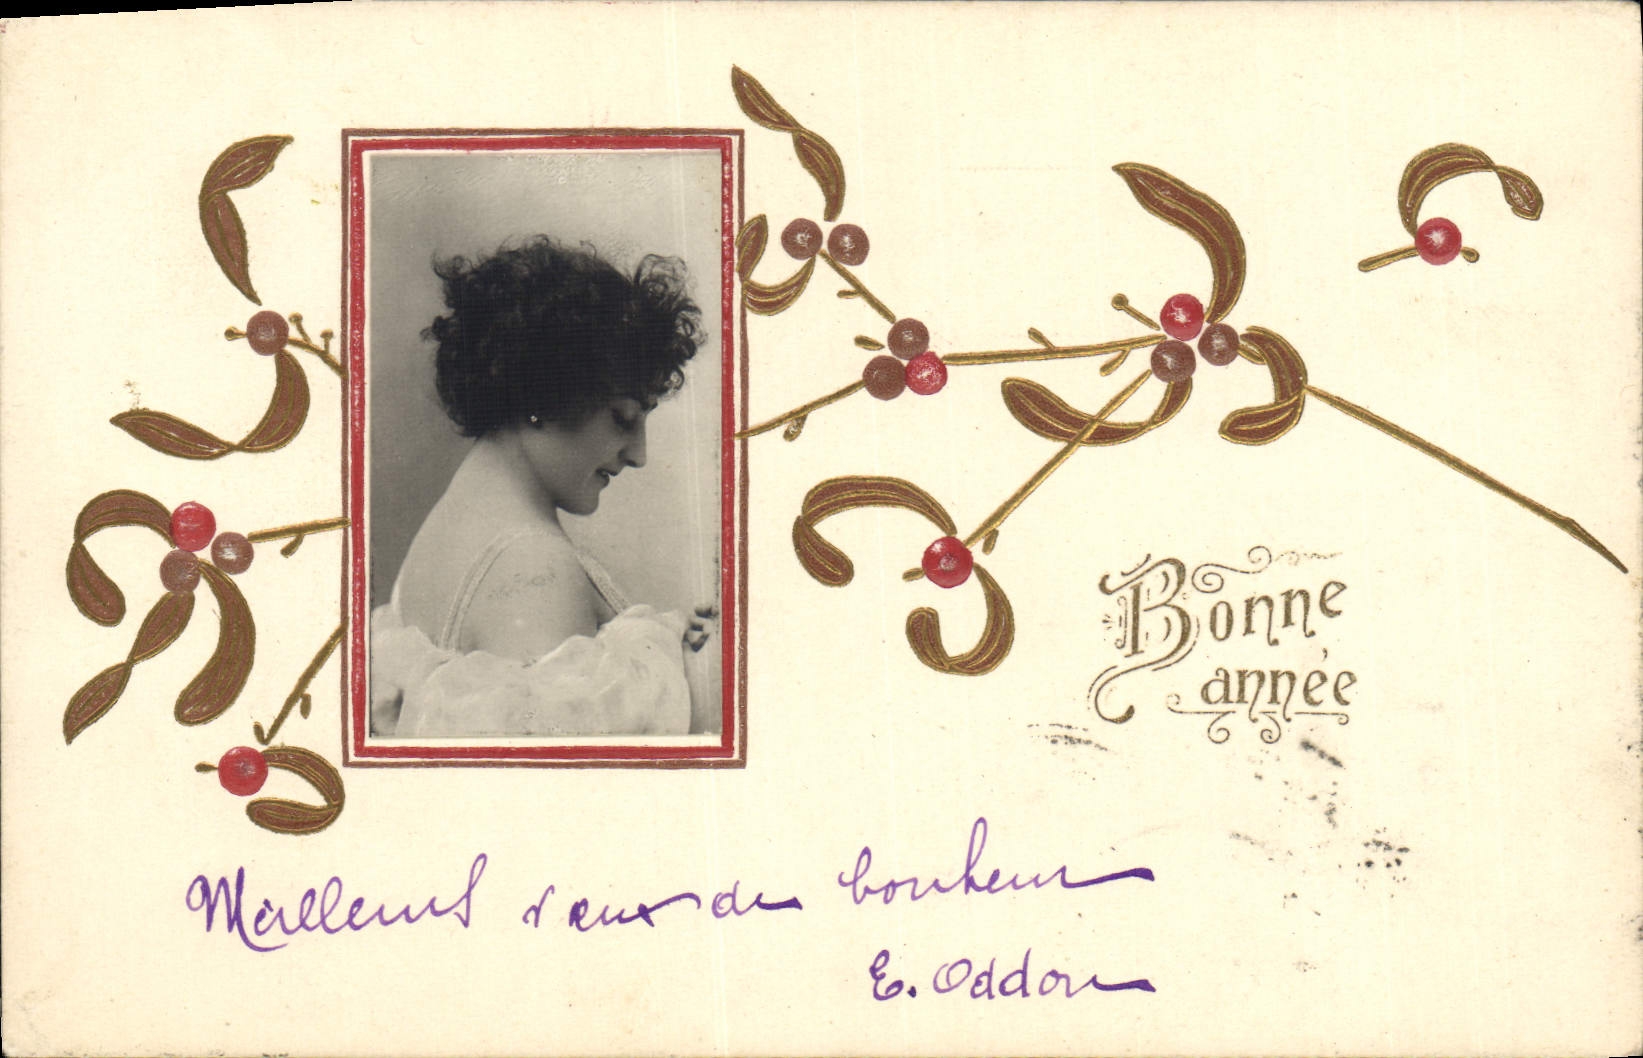 Bonne
année
Meilleurs vœux de bonheur
E. Oddon